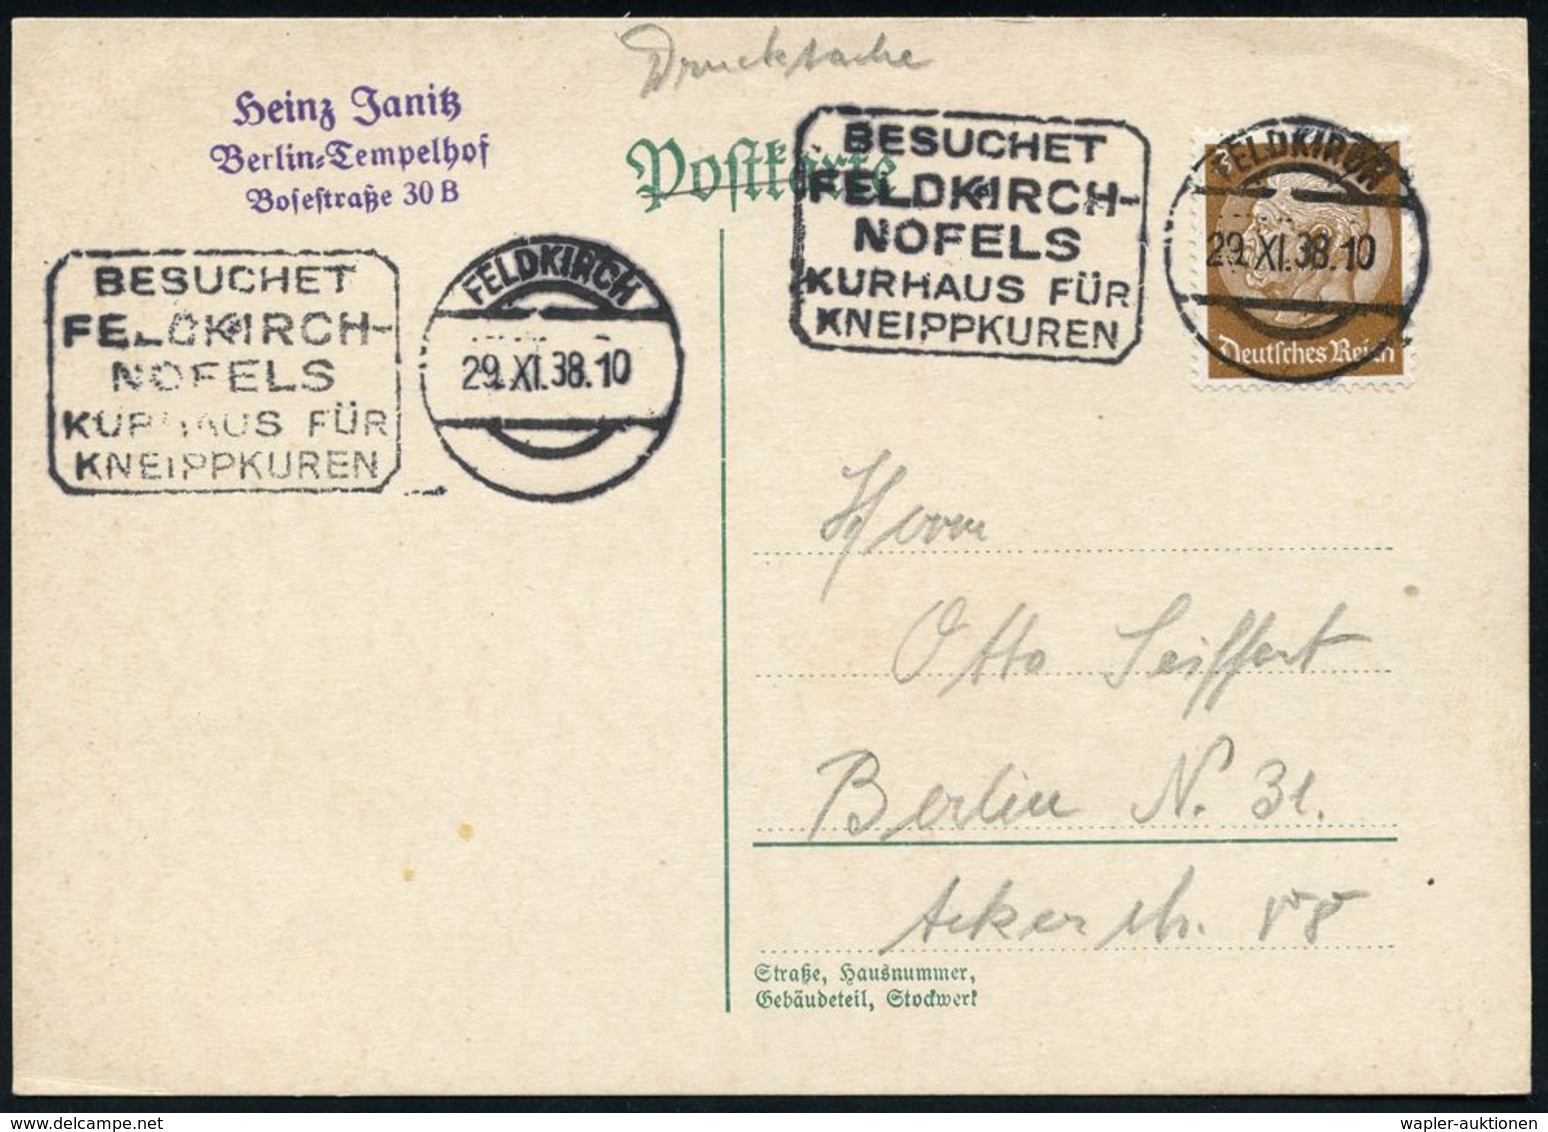 Drucksache
Heinz Janitz
Berlin-Tempelhof
Bosestraße 30 B
Postkarte
BESUCHET
FELDKIRCH-
NOFELS
KURHAUS FÜR
KNEIPPKUREN
FELDKIRCH
29.XI.38.10
Deutsches Reich
BESUCHET
FELDKIRCH-
NOFELS
KURHAUS FÜR
KNEIPPKUREN
FELDKIRCH
29.XI.38.10
Herrn
Otto Seiffert
Berlin N. 31.
Ackerstr.
Straße, Hausnummer,
Gebäudeteil, Stockwerk
wapler-auktionen